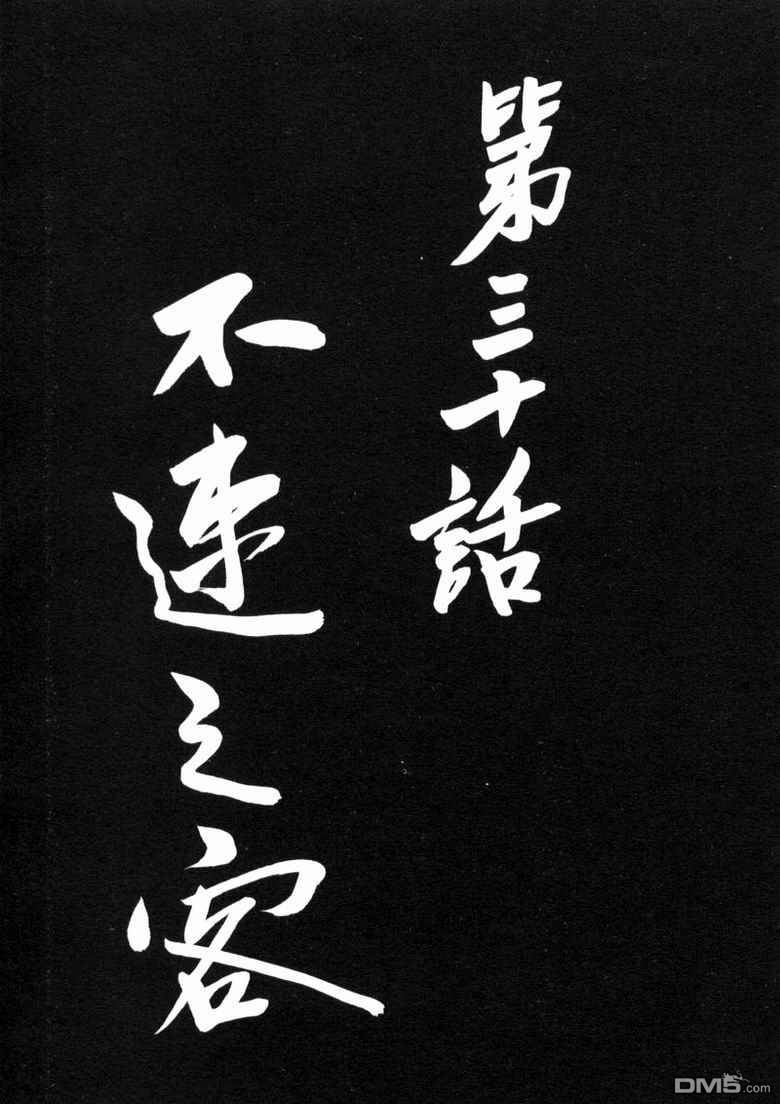 第三十話
不速之客
DM5.com